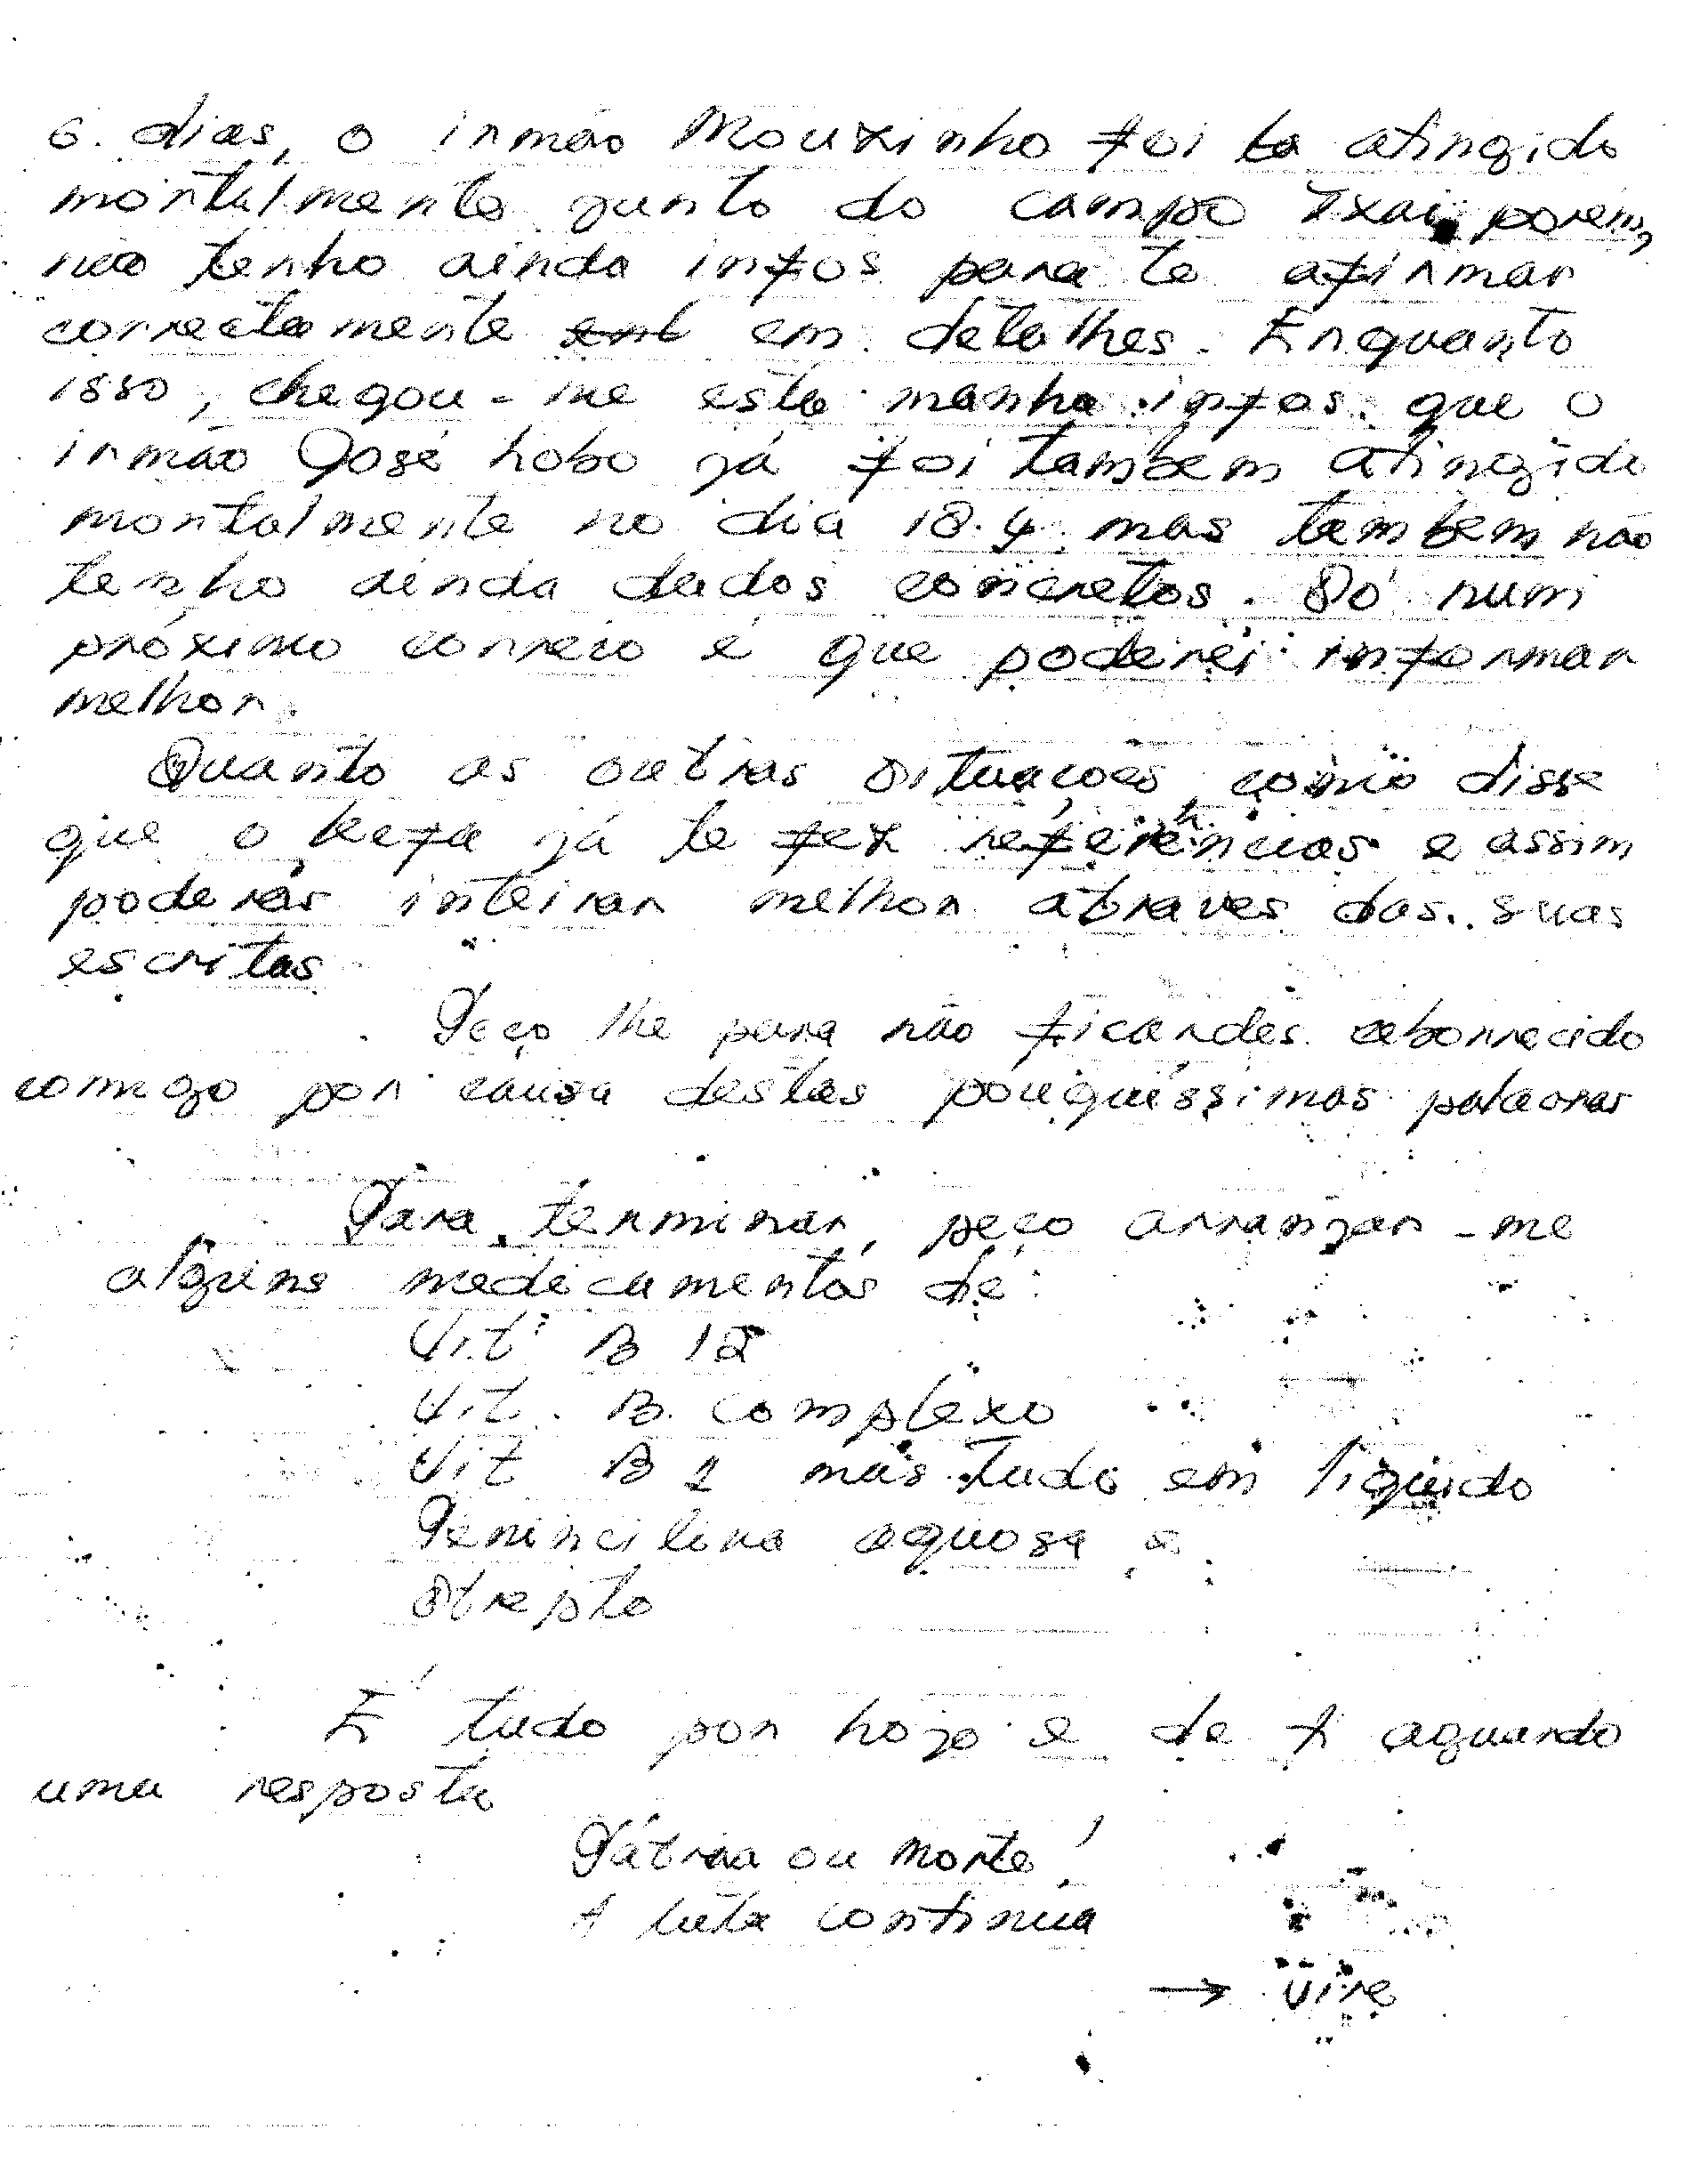 6. dias, o irmão Mouxinho foi to atingido
mortalmente junto do campo Txai, porem,
não tenho ainda infos para te afirmar
correctamente ent em detalhes. Enquanto
isso, chegou-me esta manha infos. que o
irmão José Lobo já foi tambem atingido
mortalmente no dia 18.4. mas tambem não
tenho ainda dados concretos. Só num
próximo correio é que poderei informar
melhor.
Quanto as outras situações como disse
que o Kefa já te fez referências e assim
poderás inteirar melhor atraves das suas
escritas
Peço lhe para não ficardes aborrecido
comigo por causa destas pouquissimas palavras
Para terminar, peço arranjar-me
alguns medicamentos de:
Vit B 12
Vit. B. complexo
Vit B 1 mas tudo em liquido
Penincilina aquosa e
Strepto
É tudo por hoje e de ti aguardo
uma resposta
Pátria ou Morte!
A luta continua
→ Vire